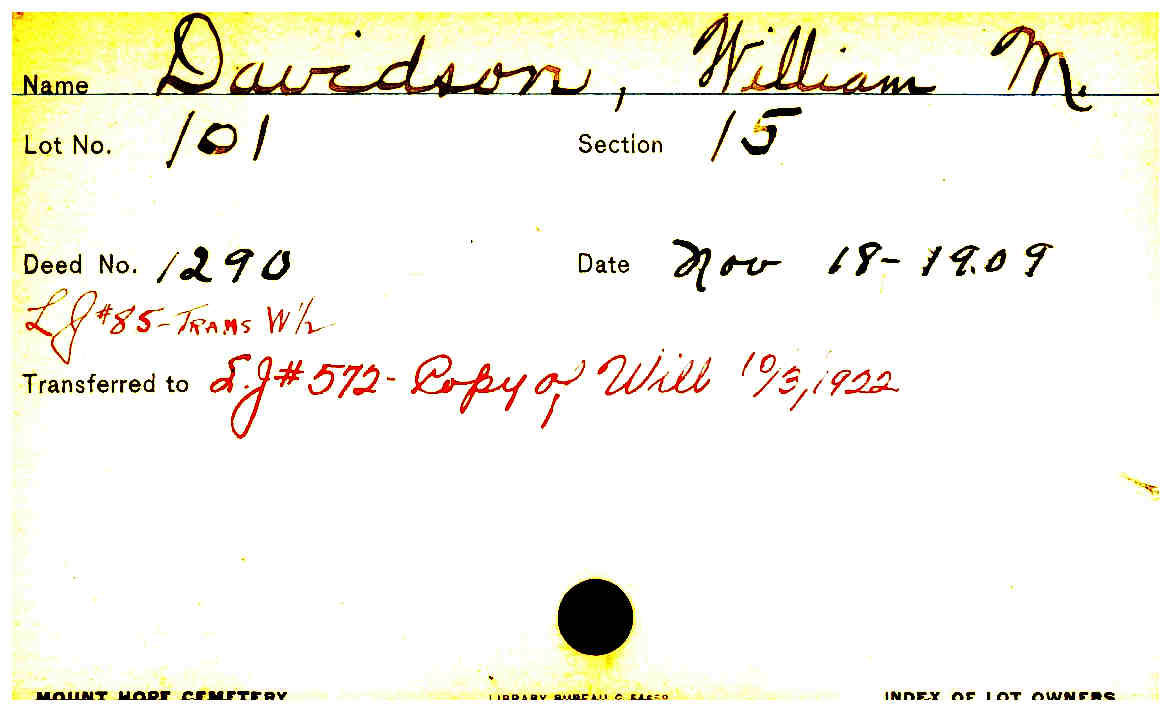 Name Davidson, William M.
Lot No. 101 Section 15
Deed No. 1290 Date Nov 18-1909
LJ #85-TRANS W 1/2
Transferred to L.J # 572- Copy of Will 10/3, 1922
MOUNT HOPE CEMETERY LIBRARY BUREAU INDEX OF LOT OWNERS